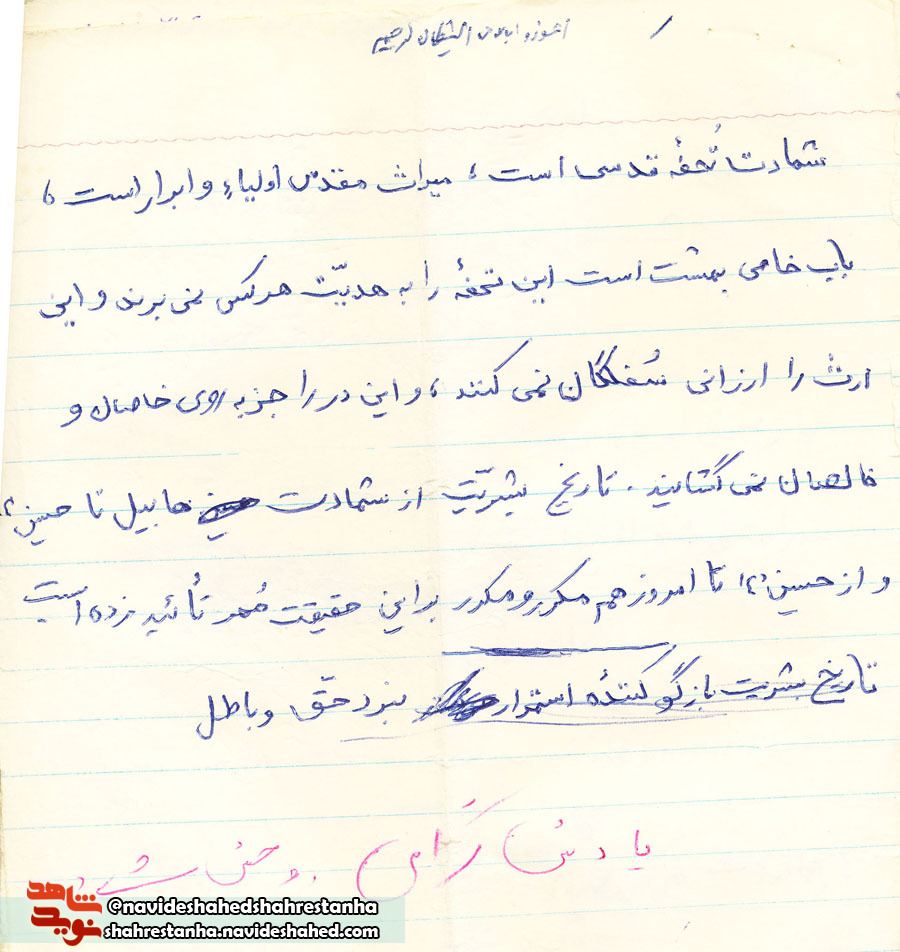 اعوذ و بالله من الشیطان الرجیم
شهادت تُحفهٔ قدسی است، میراث مقدس اولیاء و ابرار است،
باب خاص بهشت است این تحفهٔ را به هدیّت هر کس نمی برند و این
ارث را ارزانی سُفلگان نمی کنند، و این در را جز به روی خاصان و
خالصان نمی گشایند. تاریخ بشریّت از شهادت هابیل تا حسین (ع)
و از حسین (ع) تا امروز هم مکرر و مکرر بر این حقیقت مُهر تأئید زده است
تاریخ بشریت بازگو کنندهٔ استمرار نبرد حقّ و باطل
یادش گرامی روحش شاد
نوید شاهد
@navideshahedshahrestanha
shahrestanha.navideshahed.com